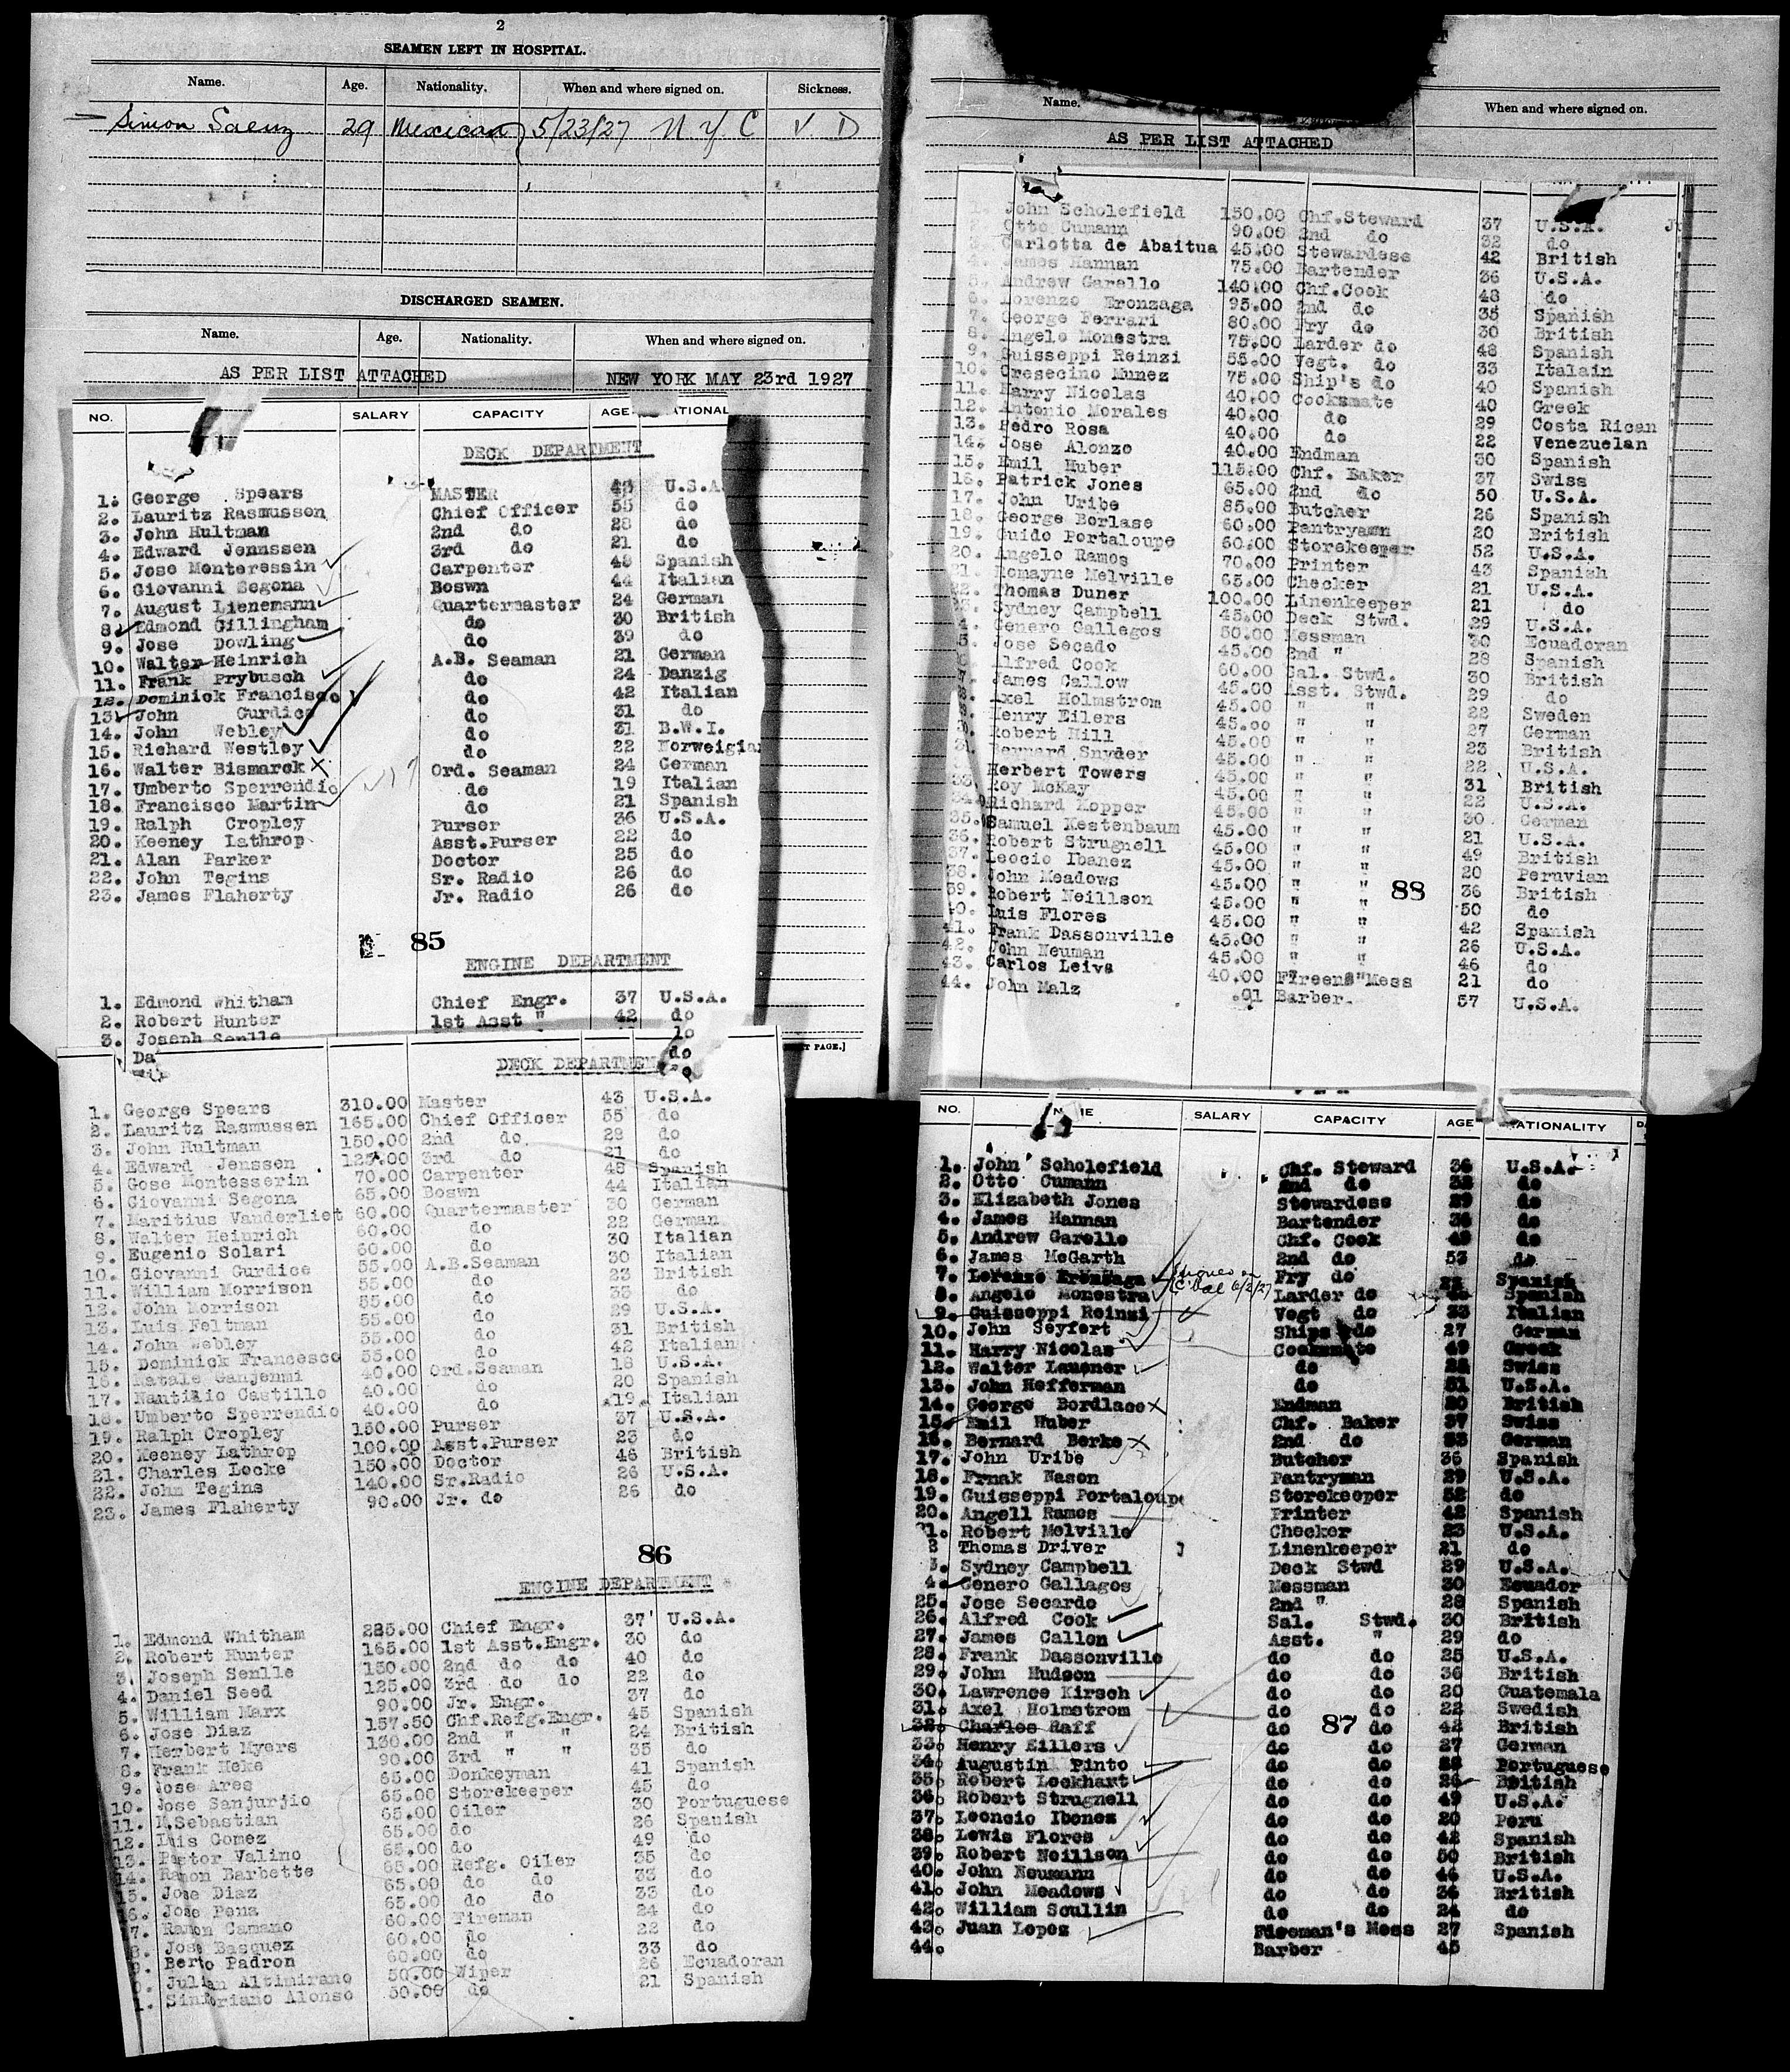 2
SEAMEN LEFT IN HOSPITAL.
Name. Age. Nationality. When and where signed on. Sickness.
Simon Saenz 29 Mexican 5/23/27 N Y C V D
DISCHARGED SEAMEN.
Name. Age. Nationality. When and where signed on.
AS PER LIST ATTACHED NEW YORK MAY 23rd 1927
NO. SALARY CAPACITY AGE
DECK DEPARTMENT
1. George Spears MASTER 43 U.S.A.
2. Lauritz Rasmussen Chief Officer 55 do
3. John Hultman 2nd do 28 do
4. Edward Jennssen 3rd do 21 do
5. Jose Monteressin Carpenter 48 Spanish
6. Giovanni Segona Boswn 44 Italian
7. August Lienemann Quartermaster 24 German
8. Edmond Gillingham do 30 British
9. Jose Dowling do 39 do
10. Walter Heinrich A.B. Seaman 21 German
11. Frank Prybusch do 24 Danzig
12. Dominick Francisco do 42 Italian
13. John Curdice do 31 do
14. John Webley do 31 B.W.I.
15. Richard Westley do 22 Norweigian
16. Walter Bismarck Ord. Seaman 24 German
17. Umberto Sperrendio do 19 Italian
18. Francisco Martin do 21 Spanish
19. Ralph Cropley Purser 36 U.S.A.
20. Keeney Lathrop Asst.Purser 22 do
21. Alan Parker Doctor 25 do
22. John Tegins Sr. Radio 26 do
23. James Flaherty Jr. Radio 26 do
85
ENGINE DEPARTMENT
1. Edmond Whitham Chief Engr. 37 U.S.A.
2. Robert Hunter 1st Asst " 42 do
3. Joseph Senlle
Da do
PAGE.]
DECK DEPARTMENT
1. George Spears 310.00 Master 43 U.S.A.
2. Lauritz Rasmussen 165.00 Chief Officer 55 do
3. John Hultman 150.00 2nd do 28 do
4. Edward Jenssen 125.00 3rd do 21 do
5. Gose Montesserin 70.00 Carpenter 48 Spanish
6. Giovanni Segona 65.00 Boswn 44 Italian
7. Maritius Vanderliet 60.00 Quartermaster 30 German
8. Walter Heinrich 60.00 do 22 German
9. Eugenio Solari 60.00 do 30 Italian
10. Giovanni Curdice 55.00 A.B.Seaman 30 Italian
11. William Morrison 55.00 do 23 British
12. John Morrison 55.00 do 33 do
13. Luis Feltman 55.00 do 29 U.S.A.
14. John Webley 55.00 do 31 British
15. Dominick Francesco 55.00 do 42 Italian
16. Natale Ganjemmi 40.00 Ord.Seaman 18 U.S.A.
17. Nantilio Castillo 40.00 do 20 Spanish
18. Umberto Sperrendio 40.00 do 19 Italian
19. Ralph Cropley 150.00 Purser 37 U.S.A.
20. Keeney Lathrop 100.00 Asst.Purser 23 do
21. Charles Locke 150.00 Doctor 46 British
22. John Tegins 140.00 Sr.Radio 26 U.S.A.
23. James Flaherty 90.00 Jr. do 26 do
86
ENGINE DEPARTMENT
1. Edmond Whitham 285.00 Chief Engr. 37 U.S.A.
2. Robert Hunter 165.00 1st Asst.Engr. 30 do
3. Joseph Senlle 150.00 2nd do do 40 do
4. Daniel Seed 125.00 3rd do do 22 do
5. William Marx 90.00 Jr. Engr. 37 do
6. Jose Diaz 157.50 Chf.Refg.Engr. 45 Spanish
7. Herbert Myers 130.00 2nd " " 24 British
8. Frank Heke 90.00 3rd " " 35 do
9. Jose Ares 65.00 Donkeyman 41 Spanish
10. Jose Sanjurjio 65.00 Storekeeper 45 do
11. M.Sebastian 65.00 Oiler 30 Portuguese
12. Luis Gomez 65.00 do 26 Spanish
13. Pastor Valino 65.00 do 49 do
14. Ramon Barbette 65.00 Refg. Oiler 35 do
15. Jose Diaz 65.00 do do 33 do
6. Jose Pena 65.00 do do 33 do
7. Ramon Camano 60.00 Fireman 24 do
8. Jose Basquez 60.00 do 22 do
9. Berto Padron 60.00 do 33 do
0. Julian Altimirano 50.00 Wiper 26 Ecuadoran
1. Sinforiano Alonso 50.00 do 21 Spanish
Name. When and where signed on.
AS PER LIST ATTACHED
1. John Scholefield 150.00 Chf.Steward 37 U.S.A.
Otto Cumann 90.00 2nd do 32 do
3. Carlotta de Abaitua 45.00 Stewardess 42 British
4. James Hannan 75.00 Bartender 36 U.S.A.
5. Andrew Garello 140.00 Chf.Cook 48 do
6. Lorenzo Eronzaga 95.00 2nd do 35 Spanish
7. George Ferrari 80.00 Fry do 30 British
8. Angelo Monestra 75.00 Larder do 48 Spanish
9. Guisseppi Reinzi 55.00 Vegt. do 33 Italain
10. Cresecino Munez 75.00 Ship's do 40 Spanish
11. Harry Nicolas 40.00 Cooksmate 40 Greek
12. Antonio Morales 40.00 do 29 Costa Rican
13. Pedro Rosa 40.00 do 22 Venezuelan
14. Jose Alonzo 40.00 Endman 30 Spanish
15. Emil Huber 115.00 Chf. Baker 37 Swiss
16. Patrick Jones 65.00 2nd do 50 U.S.A.
17. John Uribe 85.00 Butcher 26 Spanish
18. George Borlase 60.00 Pantryamn 20 British
19. Guido Portaloupe 60.00 Storekeeper 52 U.S.A.
20. Angelo Ramos 70.00 Printer 43 Spanish
21. Romayne Melville 65.00 Checker 21 U.S.A.
22. Thomas Duner 100.00 Linenkeeper 21 do
23. Sydney Campbell 45.00 Deck Stwd. 29 U.S.A.
4. Genero Gallegos 50.00 Messman 30 Ecuadoran
5. Jose Secado 45.00 2nd " 28 Spanish
6. Alfred Cook 60.00 Sal. Stwd. 30 British
7. James Callow 45.00 Asst. Stwd. 29 do
8. Axel Holmstrom 45.00 " " 22 Sweden
9. Henry Eilers 45.00 " " 27 German
30. Robert Hill 45.00 " " 23 British
31. Bernard Snyder 45.00 " " 22 U.S.A.
Herbert Towers 45.00 " " 31 British
33. Roy McKay 45.00 " " 22 U.S.A.
34. Richard Kopper 45.00 " " 30 German
35. Samuel Kestenbaum 45.00 " " 21 U.S.A.
36. Robert Strugnell 45.00 " " 49 British
37. Leocio Ibanez 45.00 " " 20 Peruvian
38. John Meadows 45.00 " " 36 British
39. Robert Neillson 45.00 " " 50 do
40. Luis Flores 45.00 " " 42 Spanish
41. Frank Dassonville 45.00 " " 26 U.S.A.
42. John Neuman 45.00 " " 46 do
43. Carlos Leiva 40.00 Fireens"Mess 21 do
44. John Malz .01 Barber. 57 U.S.A.
88
NO. NAME SALARY CAPACITY AGE NATIONALITY
1. John Scholefield Chf. Steward 36 U.S.A.
2. Otto Cumann 2nd do 32 do
3. Elizabeth Jones Stewardess 29 do
4. James Hannan Bartender 36 do
5. Andrew Garello Chf. Cook 49 do
6. James McGarth 2nd do 53 do
7. Lorenzo Eronzaga Fry do Spanish
8. Angelo Monestra Larder do Spanish
9. Guisseppi Reinzi Vegt do 33 Italian
10. John Seyfert Ships do 27 German
11. Harry Nicolas Cooksmate 49 Greek
12. Walter Lausner do 22 Swiss
13. John Hefferman do 51 U.S.A.
14. George Bordlace Endman 20 British
15. Emil Huber Chf. Baker 37 Swiss
16. Bernard Berke 2nd do 23 German
17. John Uribe Butcher 36 Spanish
18. Frnak Nason Pantryman 29 U.S.A.
19. Guisseppi Portaloupe Storekeeper 52 do
20. Angell Ramos Printer 42 Spanish
21. Robert Melville Checker 23 U.S.A.
2 Thomas Driver Linenkeeper 21 do
3. Sydney Campbell Deck Stwd 29 U.S.A.
4. Genero Gallagos Messman 30 Ecuador
25. Jose Secardo 2nd " 28 Spanish
26. Alfred Cook Sal. Stwd. 30 British
27. James Callon Asst. " 29 do
28. Frank Dassonville do do 25 U.S.A.
29. John Hudson do do 36 British
30. Lawrence Kirsch do do 20 Guatemala
31. Axel Holmstrom do do 22 Swedish
32. Charles Raff do do 42 British
33. Henry Eillers do do 27 German
34. Augustin Pinto do do Portuguese
35. Robert Lockhart do do 26 British
36. Robert Strugnell do do 49 U.S.A.
37. Leoncio Ibenez do do 20 Peru
38. Lewis Flores do do 42 Spanish
39. Robert Neillson do do 50 British
40. John Neumann do do 46 U.S.A.
41. John Meadows do do 36 British
42. William Scullin do do 24 do
43. Juan Lopez Fireman's Mess 27 Spanish
44. Barber 45
87